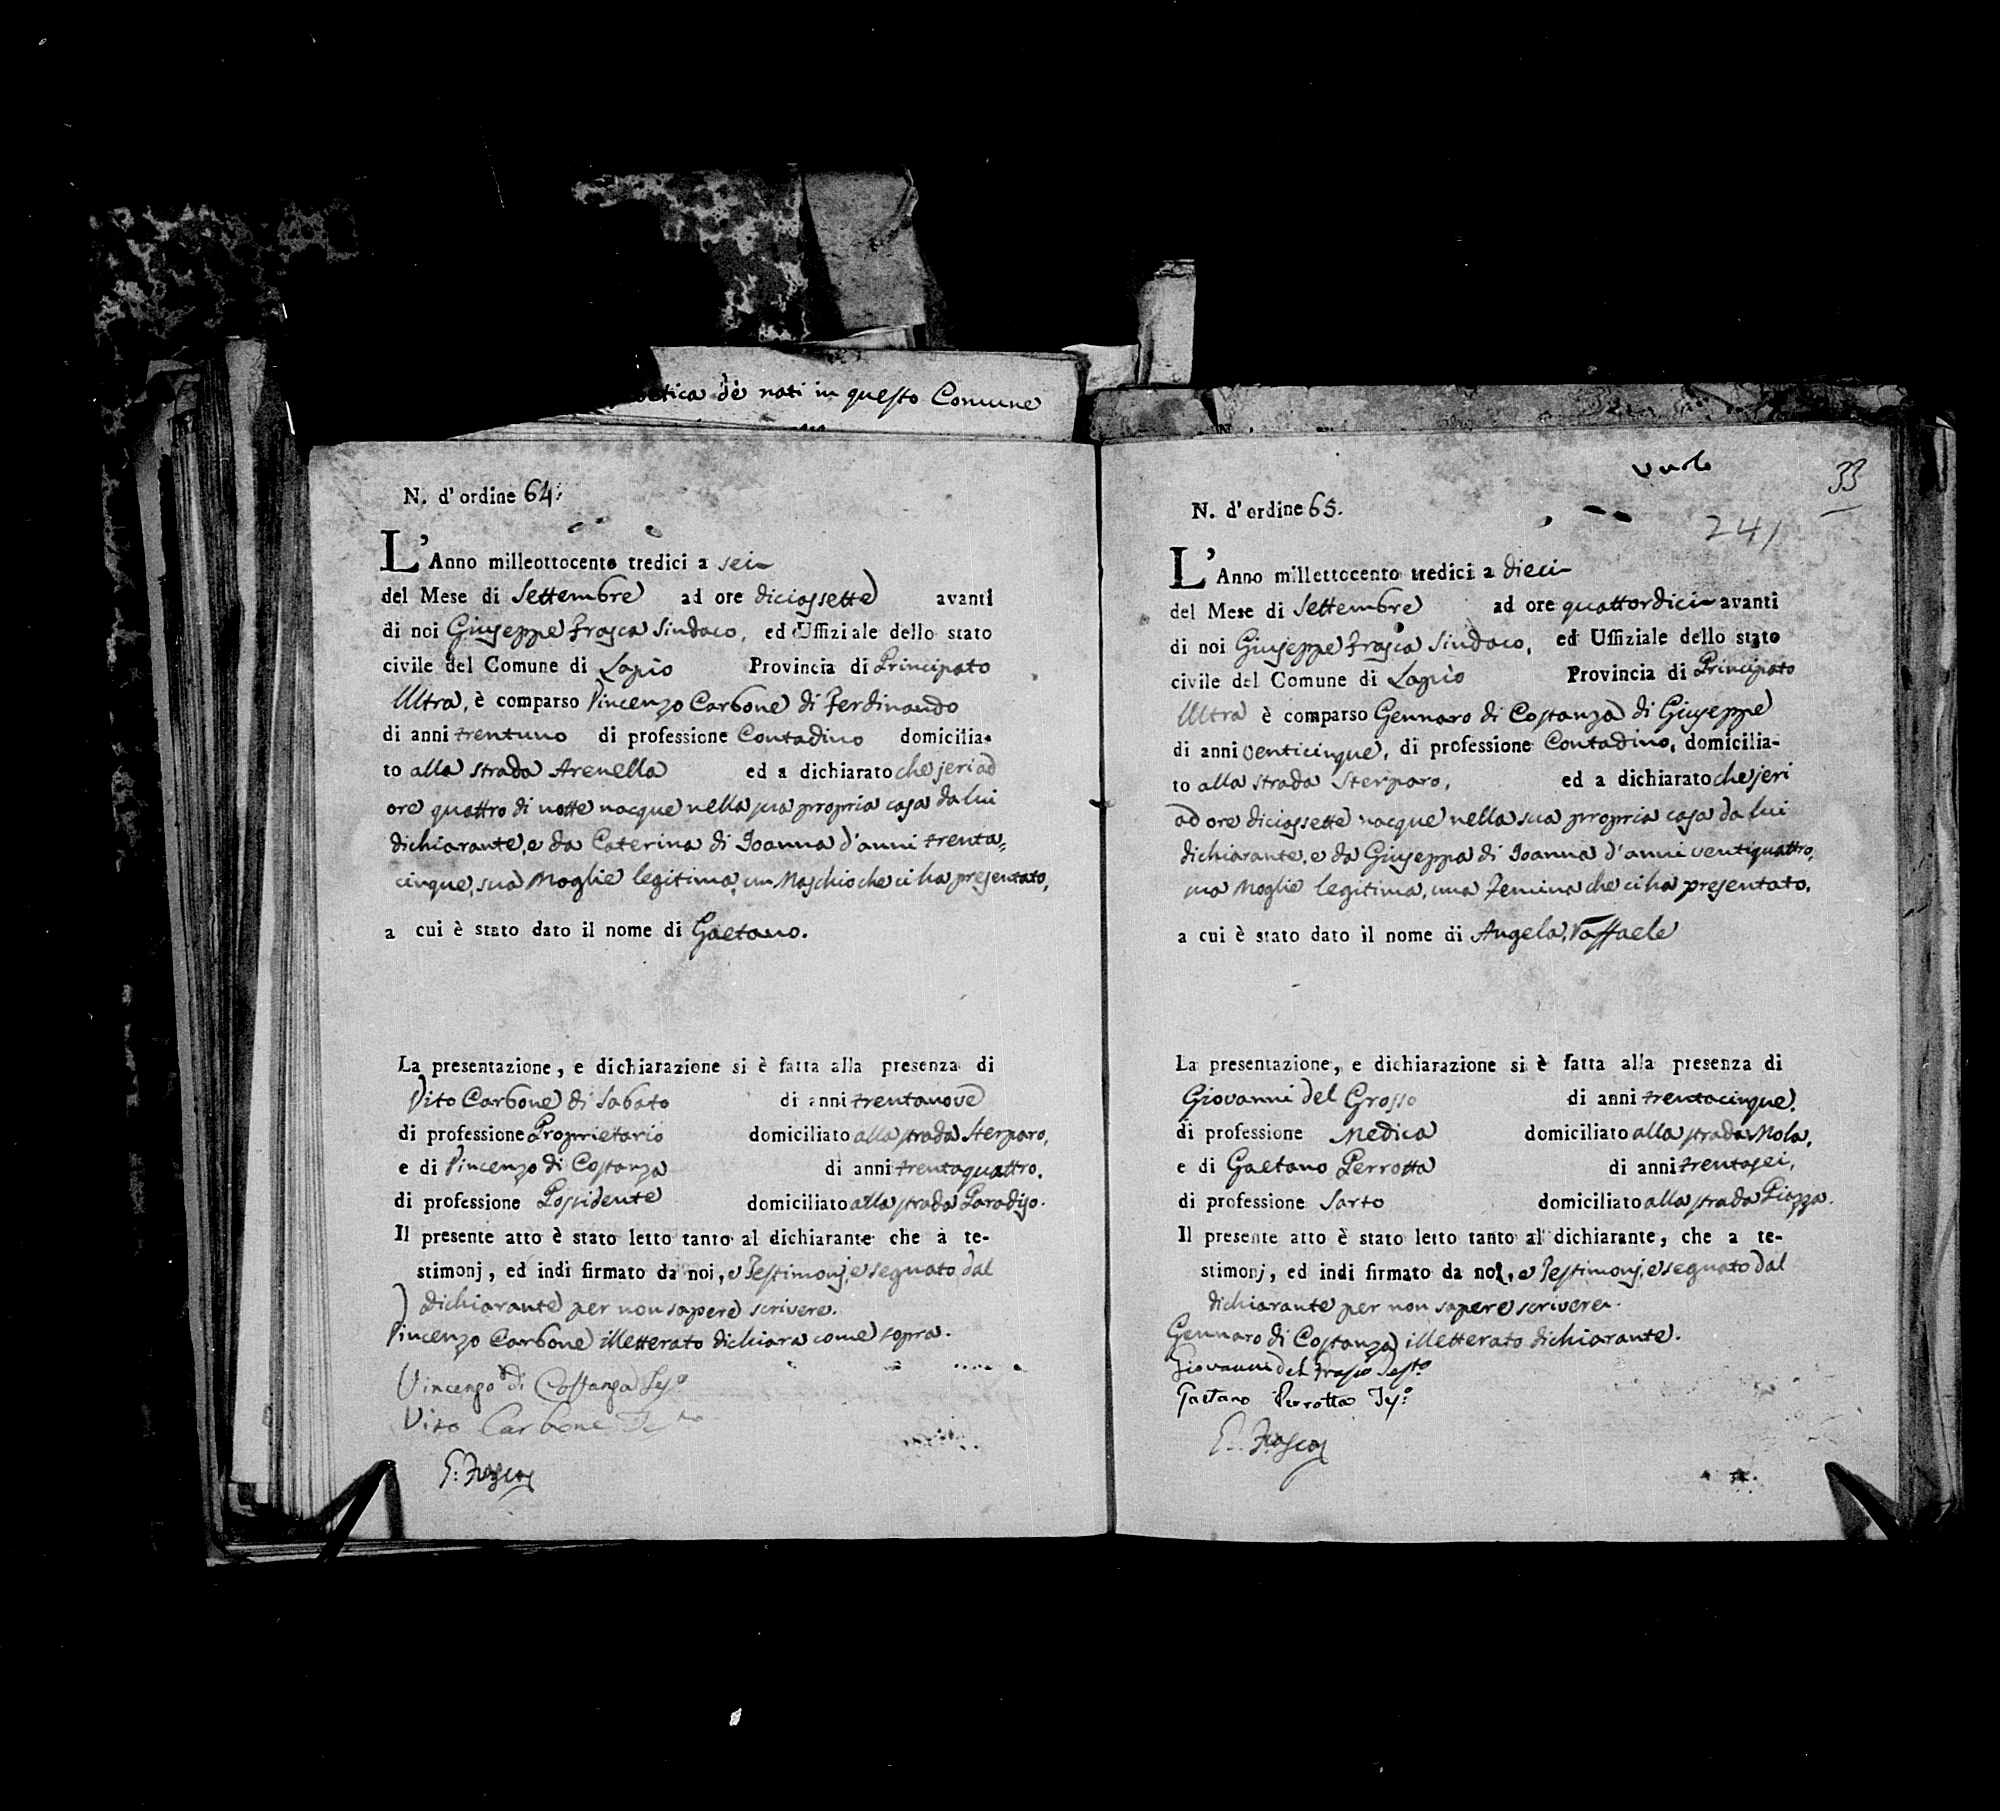 de nati in questo Comune
N. d'ordine 64.
L'Anno milleottocento tredici a sei
del Mese di Settembre ad ore diciassette avanti
di noi Giuseppe Frasca Sindaco, ed Uffiziale dello stato
civile del Comune di Lapio Provincia di Principato
Ultra, è comparso Vincenzo Carbone di Ferdinando
di anni trentuno di professione Contadino domicilia-
to alla strada Arenella ed a dichiarato che jeri ad
ore quattro di notte nacque nella sua propria casa da lui
dichiarante, e da Caterina di Joanna d'anni trenta=
cinque, sua Moglie legitima, un Maschio che ci ha presentato,
a cui è stato dato il nome di Gaetano.
La presentazione, e dichiarazione si è fatta alla presenza di
Vito Carbone di Sabato di anni trentanove
di professione Proprietario domiciliato alla strada Sterparo,
e di Vincenzo di Costanza di anni trentaquattro.
di professione Possidente domiciliato alla strada Paradiso.
Il presente atto è stato letto tanto al dichiarante che a te-
stimonj, ed indi firmato da noi, e Testimonj, e segnato dal
dichiarante per non sapere scrivere.
Vincenzo Carbone illetterato dichiara come sopra.
Vincenzo di Costanza Tes.o
Vito Carbone
G. Frasca
33
241
N. d'ordine 65.
L'Anno millettocento tredici a dieci
del Mese di Settembre ad ore quattordici avanti
di noi Giuseppe Frasca Sindaco, ed Uffiziale dello stato
civile del Comune di Lapio Provincia di Principato
Ultra è comparso Gennaro di Costanza di Giuseppe
di anni venticinque, di professione Contadino, domicilia-
to alla strada Sterparo, ed a dichiarato che jeri
ad ore diciassette nacque nella sua propria casa da lui
dichiarante, e da Giuseppa di Joanna d'anni ventiquattro,
sua Moglie legitima, una Femina che ci ha presentato,
a cui è stato dato il nome di Angela, Raffaele
La presentazione, e dichiarazione si è fatta alla presenza di
Giovanni del Grosso di anni trentacinque,
di professione Medico domiciliato alla strada Mola,
e di Gaetano Perrotta di anni trentasei,
di professione Sarto domiciliato alla strada Piazza.
Il presente atto è stato letto tanto al dichiarante, che a te-
stimonj, ed indi firmato da noi, e Testimonj, e segnato dal
dichiarante per non sapere scrivere.
Gennaro di Costanza illetterato dichiarante.
Giovanni del Grosso Test.o
Gaetano Perrotta Tes.o
G. Frasca